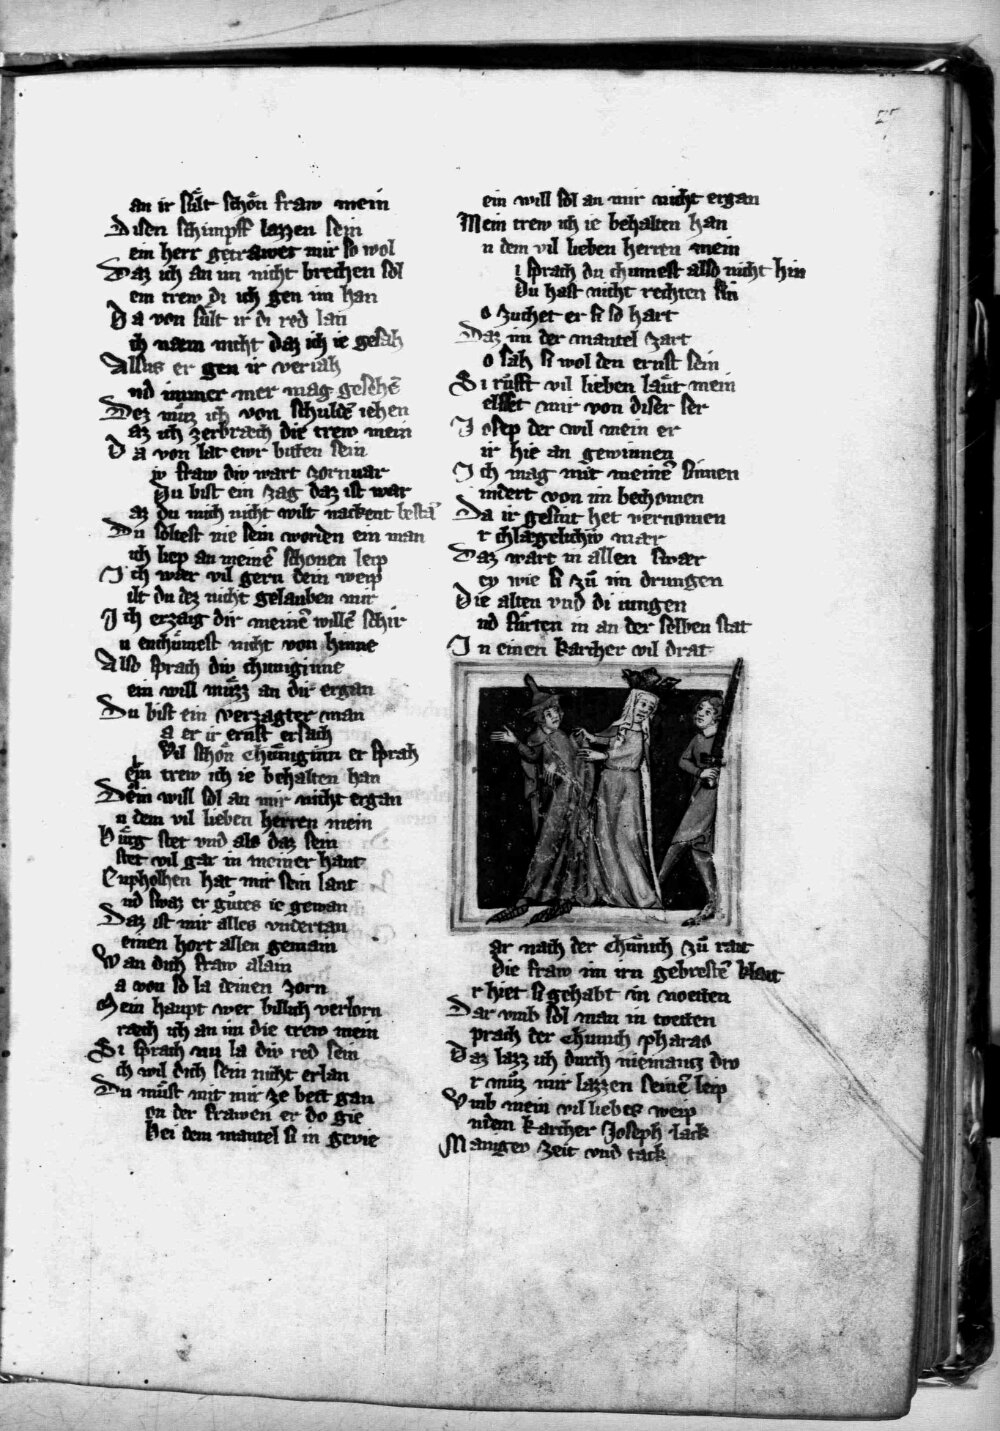 an ir sült schön fraw mein
Disen schimpff lazzen sein
ein herr getrawet mir so wol
Daz ich an im nicht brechen sol
ein trew di ich gen im han
Da von sült ir di red lan
ich naem nicht daz ich ie gesach
Allsus er gen ir veriach
nd immer mer mag geschen̄
Dez müz ich von schulden̄ iehen
az ich zerbraech die trew mein
Da von lat ewr biten sein
iv fraw div wart zornuar
Du bist ein zag daz ist war
az du mich nicht wilt nackent besta
Du soltest nie sein worden ein man
ich liep an meinē schonen leip
Ich wär vil gern dein weip
ilt du dez nicht gelauben mir
Ich erzaig dir meinē willē schir
u enchümest nicht von hinne
Also sprach div chuniginne
ein will müzz an dir ergan
Du bist ein verzagter man
a er ir ernst ersach
Vil schön chüniginn er sprach
ein trew ich ie behalten han
Dein will sol an mir nicht ergan
n dem vil lieben herren mein
Hüng stet vnd als daz sein
stet vil gar in meiner hant
Enpholhen hat mir sein lant
nd swaz er gütes ie gewan
Daz ist mir alles vndertan
einen hort allen gemain
Wan dich fraw alain
a von so la deinen zorn
Mein haupt wer billich verlorn
raech ich an im die trew mein
Si sprach nu la div red sein
ch wil dich sein nicht erlan
Du müst mit mir ze bett gan
on der frawen er do gie
Bei dem mantel si in gevie
ein will sol an mir nicht ergan
Mein trew ich ie behalten han
n dem vil lieben herren mein
i sprach du chumest also nicht hin
Du hast nicht rechten sin
o zuchet er si so hart
Daz im der mantel zart
o sah si wol den ernst sein
Si rüfft vil lieben läut mein
elffet mir von diser ser
Iosep der wil mein er
ir hie an gewinnen
Ich mag mit meinē sinnen
indert von im bechomen
Da ir gesint het vernomen
r chlaegelichiv maer
Daz wart in allen swaer
ey wie si zü im drungen
Die alten vnd di iungen
nd fürten in an der selben stat
In einen karcher vil drat
ar nach der chünich zü rait
Die fraw im irn gebresten̄ klait
r hiet si gehabt in noeten
Dar vmb sol man in toeten
prach der chunich pharao
Daz lazz ich durch niemantz dro
r müz mir lazzen seinē leip
Vmb mein vil liebes weip
n dem karcher Joseph lack
Manigev zeit vnd tack